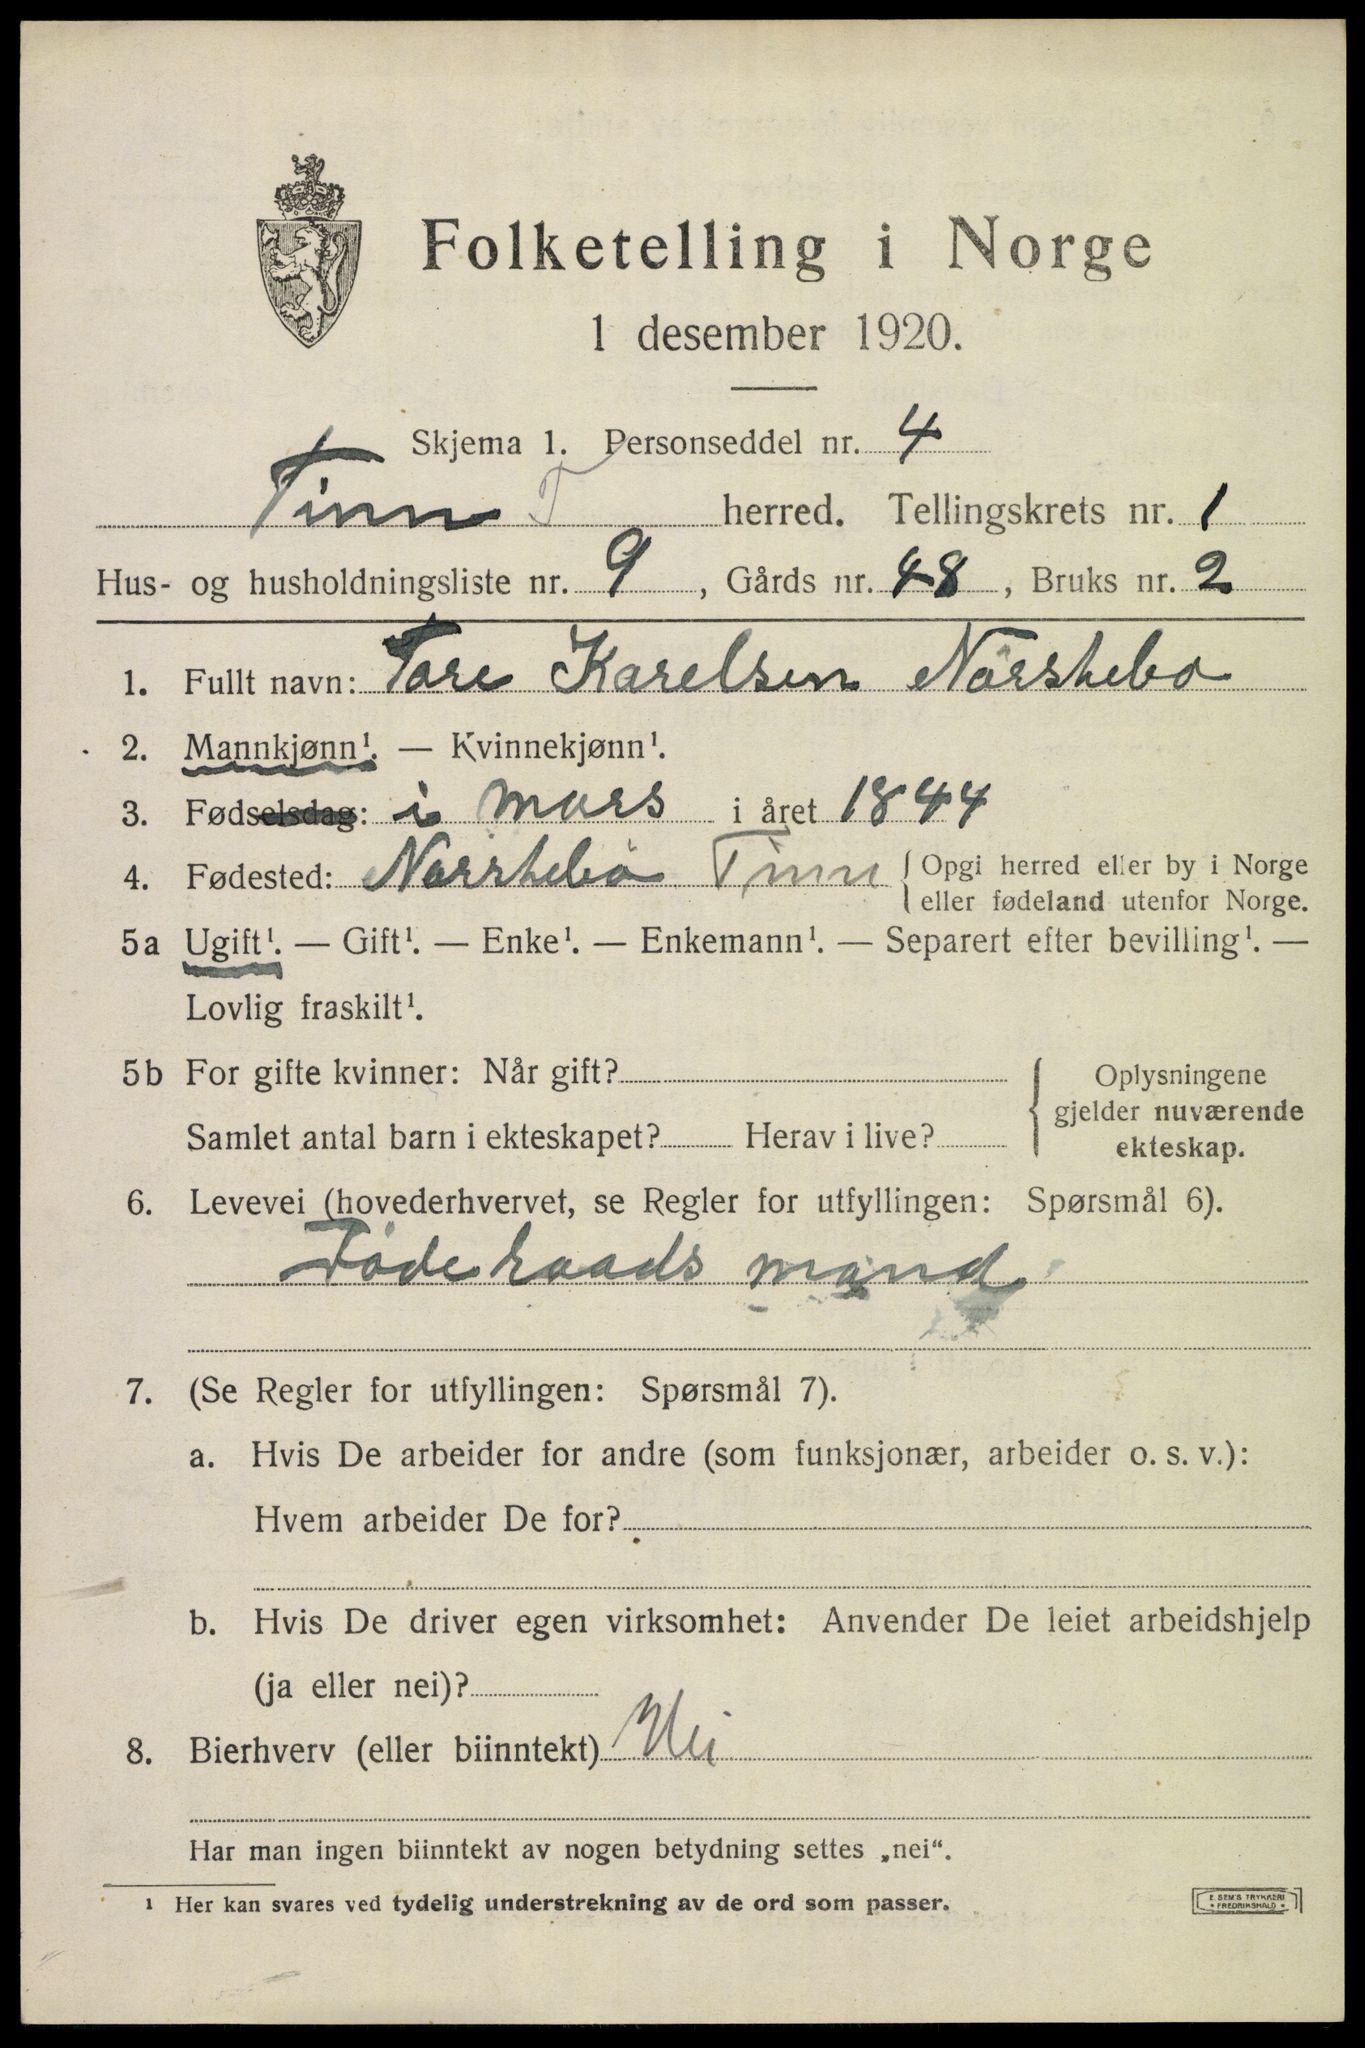 Folketelling i Norge
1 desember 1920.
Skjema 1. Personseddel nr. 4
Tinn T herred. Tellingskrets nr. 1
Hus- og husholdningsliste nr. 9, Gårds nr. 48, Bruks nr. 2
1. Fullt navn: Tore Karelsen Nørstebø
2. Mannkjønn¹. — Kvinnekjønn¹.
3. Fødselsdag: i mars i året 1844
4. Fødested: Norstebø Tinn { Opgi herred eller by i Norge
eller fødeland utenfor Norge.
5a Ugift¹. — Gift¹. — Enke¹. — Enkemann¹. — Separert efter bevilling¹. —
Lovlig fraskilt¹.
5b For gifte kvinner: Når gift?
Samlet antal barn i ekteskapet? Herav i live?
{ Oplysningene
gjelder nuværende
ekteskap.
6. Levevei (hovederhvervet, se Regler for utfyllingen: Spørsmål 6).
Føderaads mand
7. (Se Regler for utfyllingen: Spørsmål 7).
a. Hvis De arbeider for andre (som funksjonær, arbeider o. s. v.):
Hvem arbeider De for?
b. Hvis De driver egen virksomhet: Anvender De leiet arbeidshjelp
(ja eller nei)?
8. Bierhverv (eller biinntekt) Nei
Har man ingen biinntekt av nogen betydning settes „nei“.
¹ Her kan svares ved tydelig understrekning av de ord som passer.
E. SEM'S TRYKKERI
* FREDRIKSHALD *